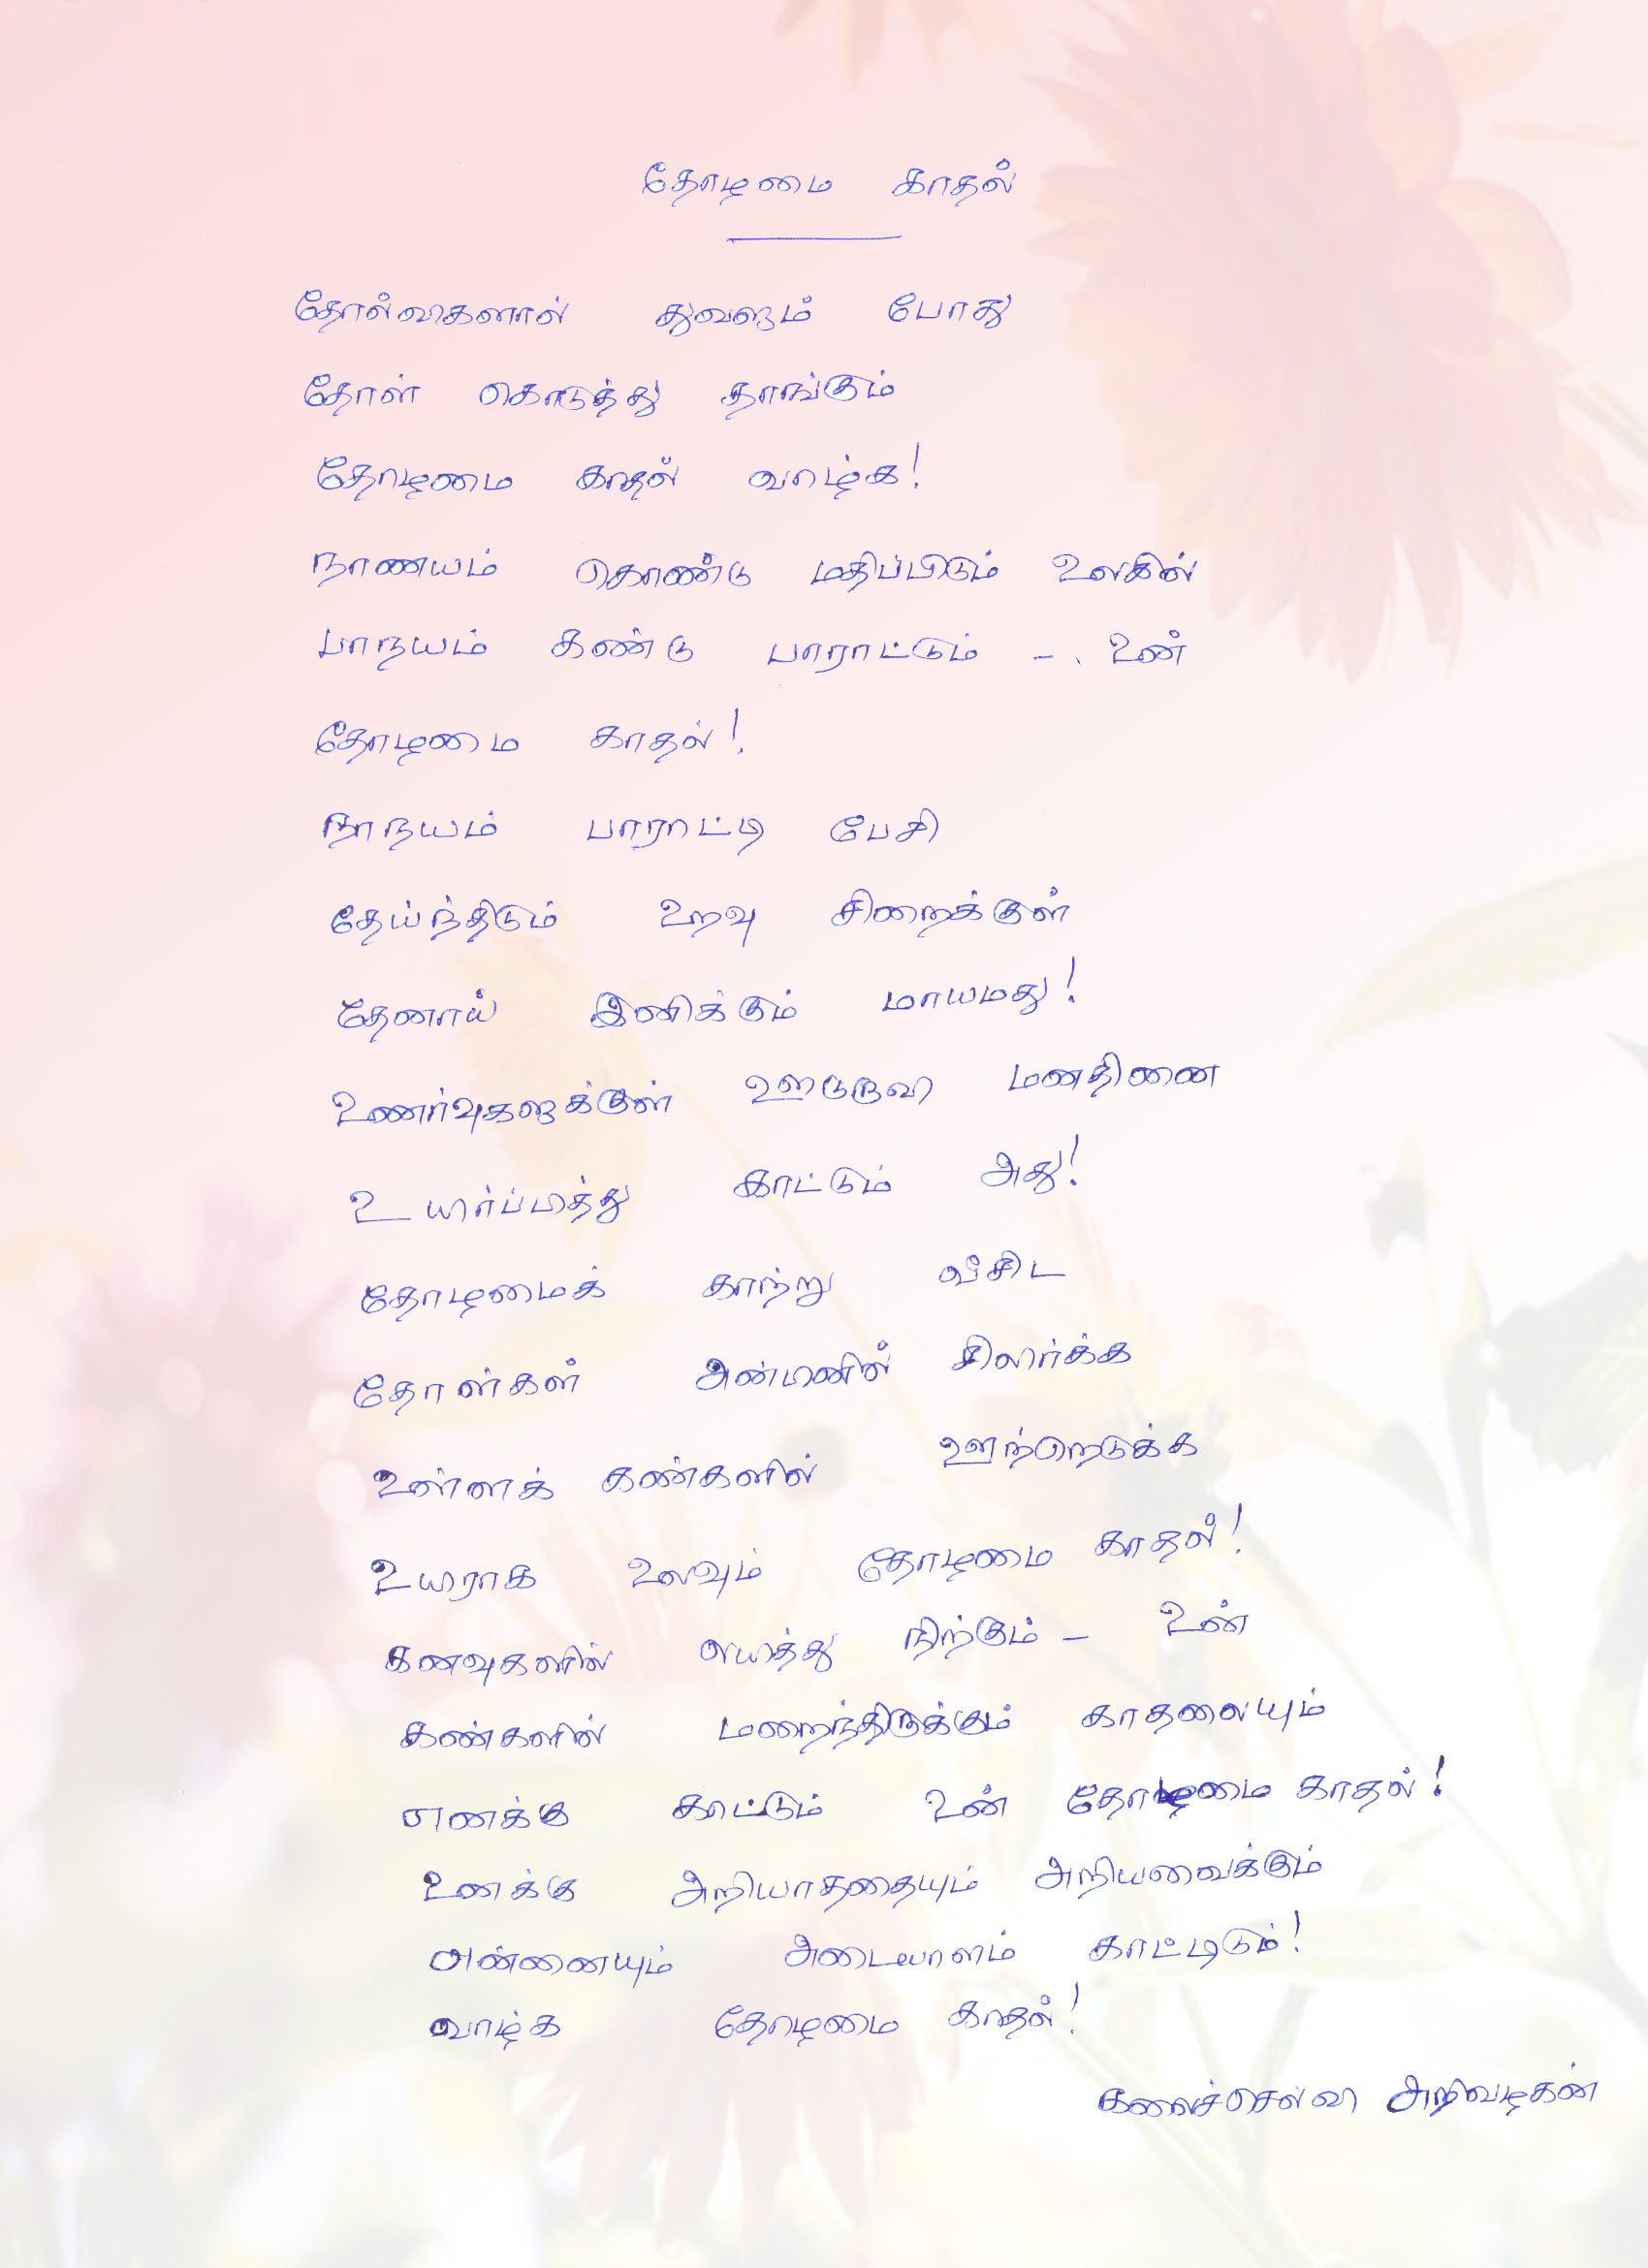 தோழமை காதல்
தோல்விகளால் துவளும் போது
தோள் கொடுத்து தாங்கும்
தோழமை காதல் வாழ்க!
நாணயம் கொண்டு மதிப்பிடும் உலகில்
பாநயம் கண்டு பாராட்டும் - உன்
தோழமை காதல்!
நாநயம் பாராட்டி பேசி
தேய்ந்திடும் உறவு சிறைக்குள்
தேனாய் இனிக்கும் மாயமது!
உணர்வுகளுக்குள் ஊடுருவி மனதினை
உயிர்ப்பித்து காட்டும் அது!
தோழமைக் காற்று வீசிட
தோள்கள் அன்பினில் சிலிர்க்க
உன்னைக் கண்களில் ஊற்றெடுக்க
உயிராக உலவும் தோழமை காதல்!
கனவுகளில் வியத்து நிற்கும் - உன்
கண்களின் மறைந்திருக்கும் காதலையும்
எனக்கு காட்டும் உன் தோழமை காதல்!
உனக்கு அறியாததையும் அறியவைக்கும்
என்னையும் அடையாளம் காட்டிடும்!
வாழ்க தோழமை காதல்!
கலைச்செல்வி அறிவழகன்